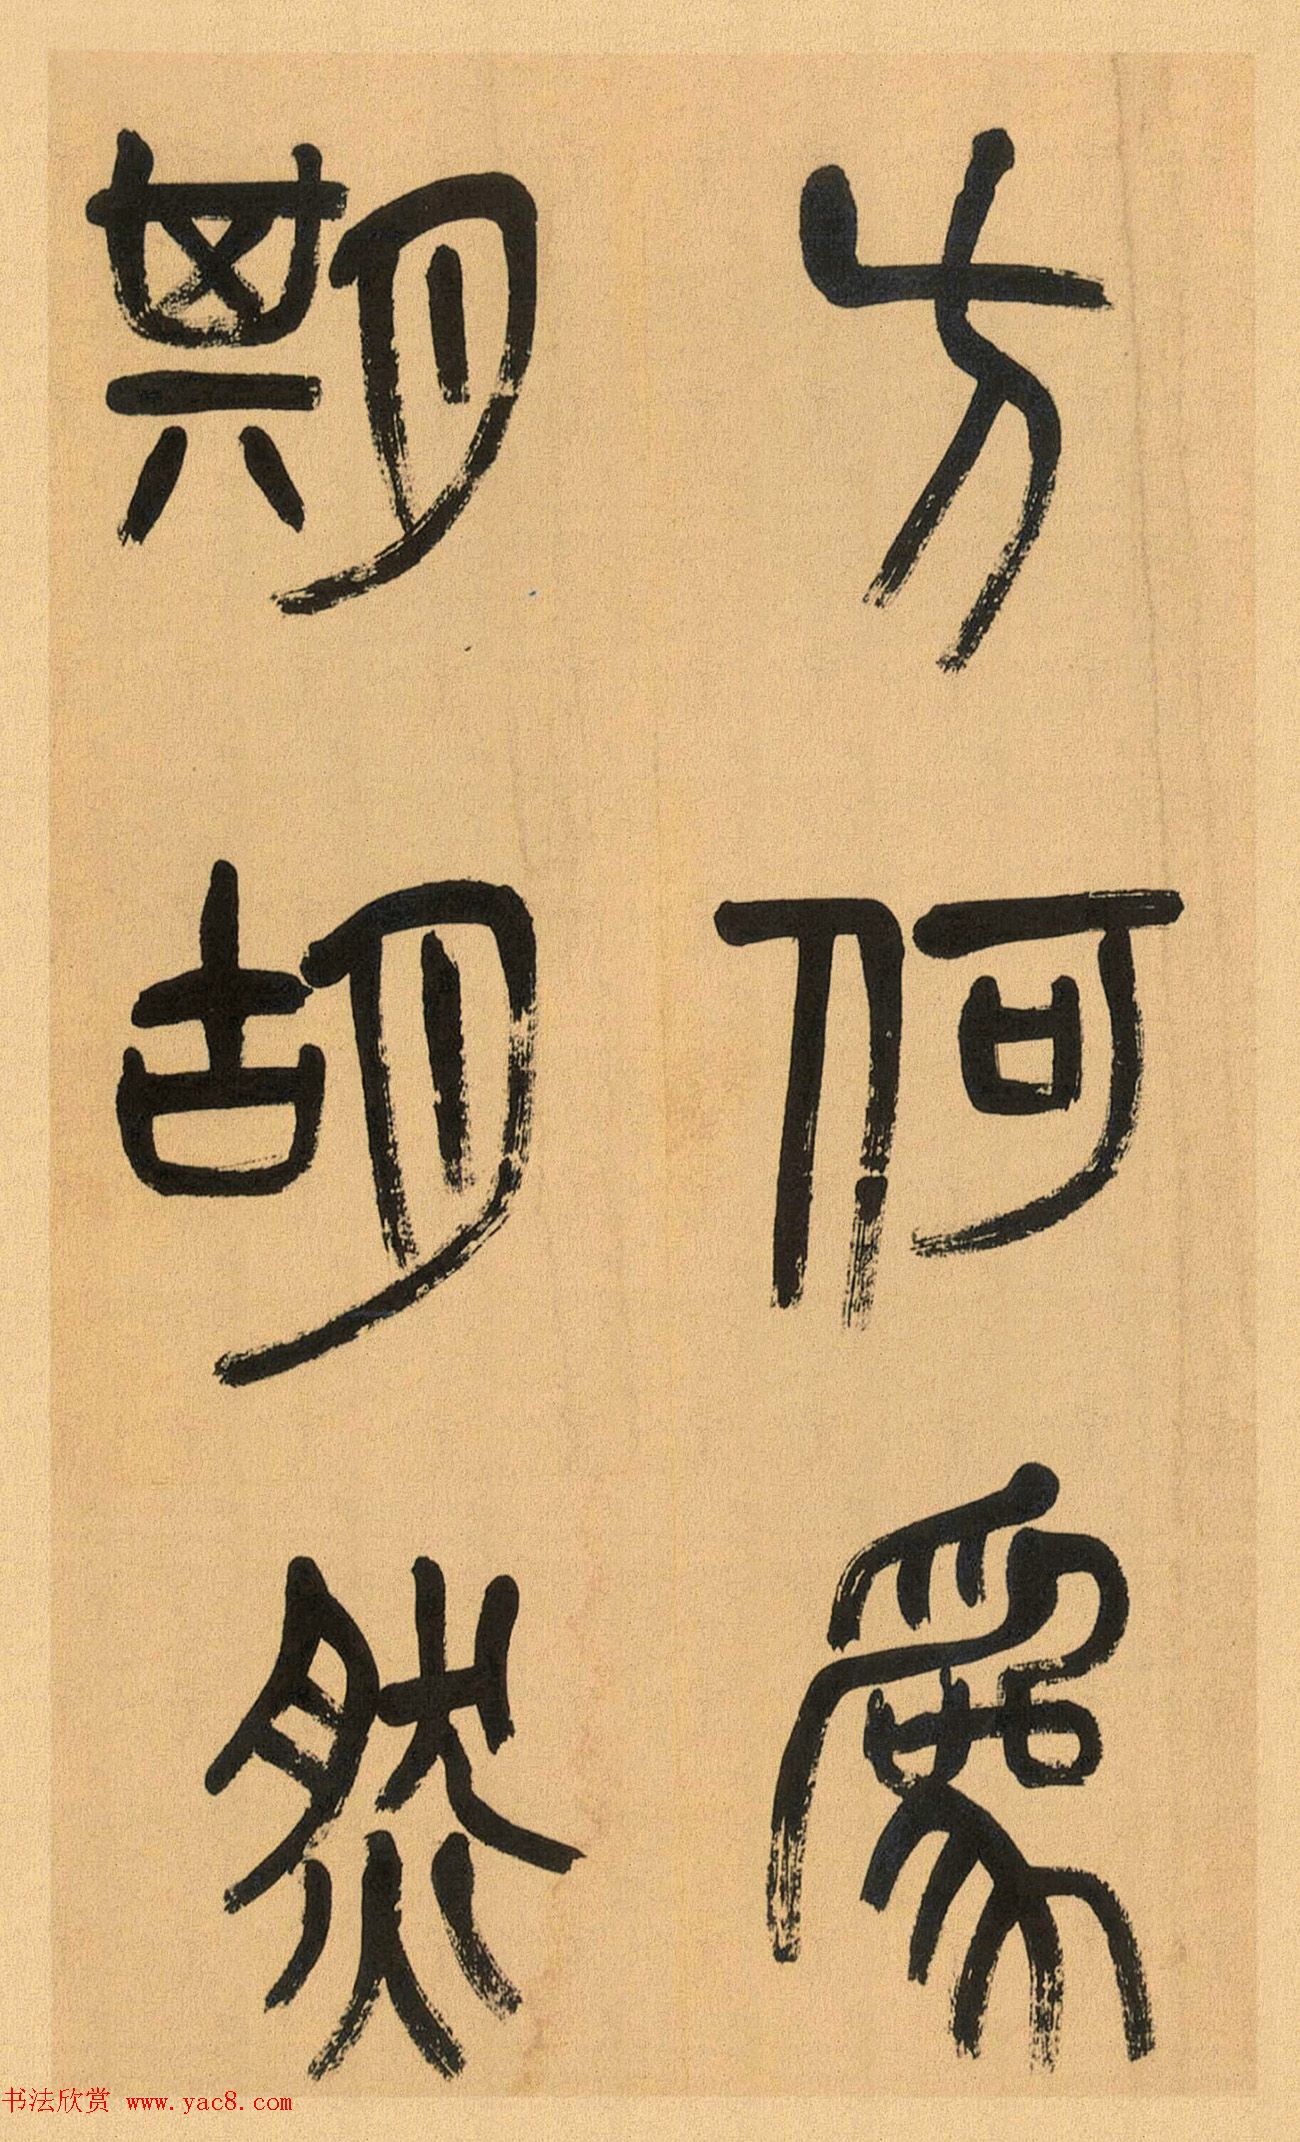 方何爲
期胡然
书法欣赏 www.yac8.com